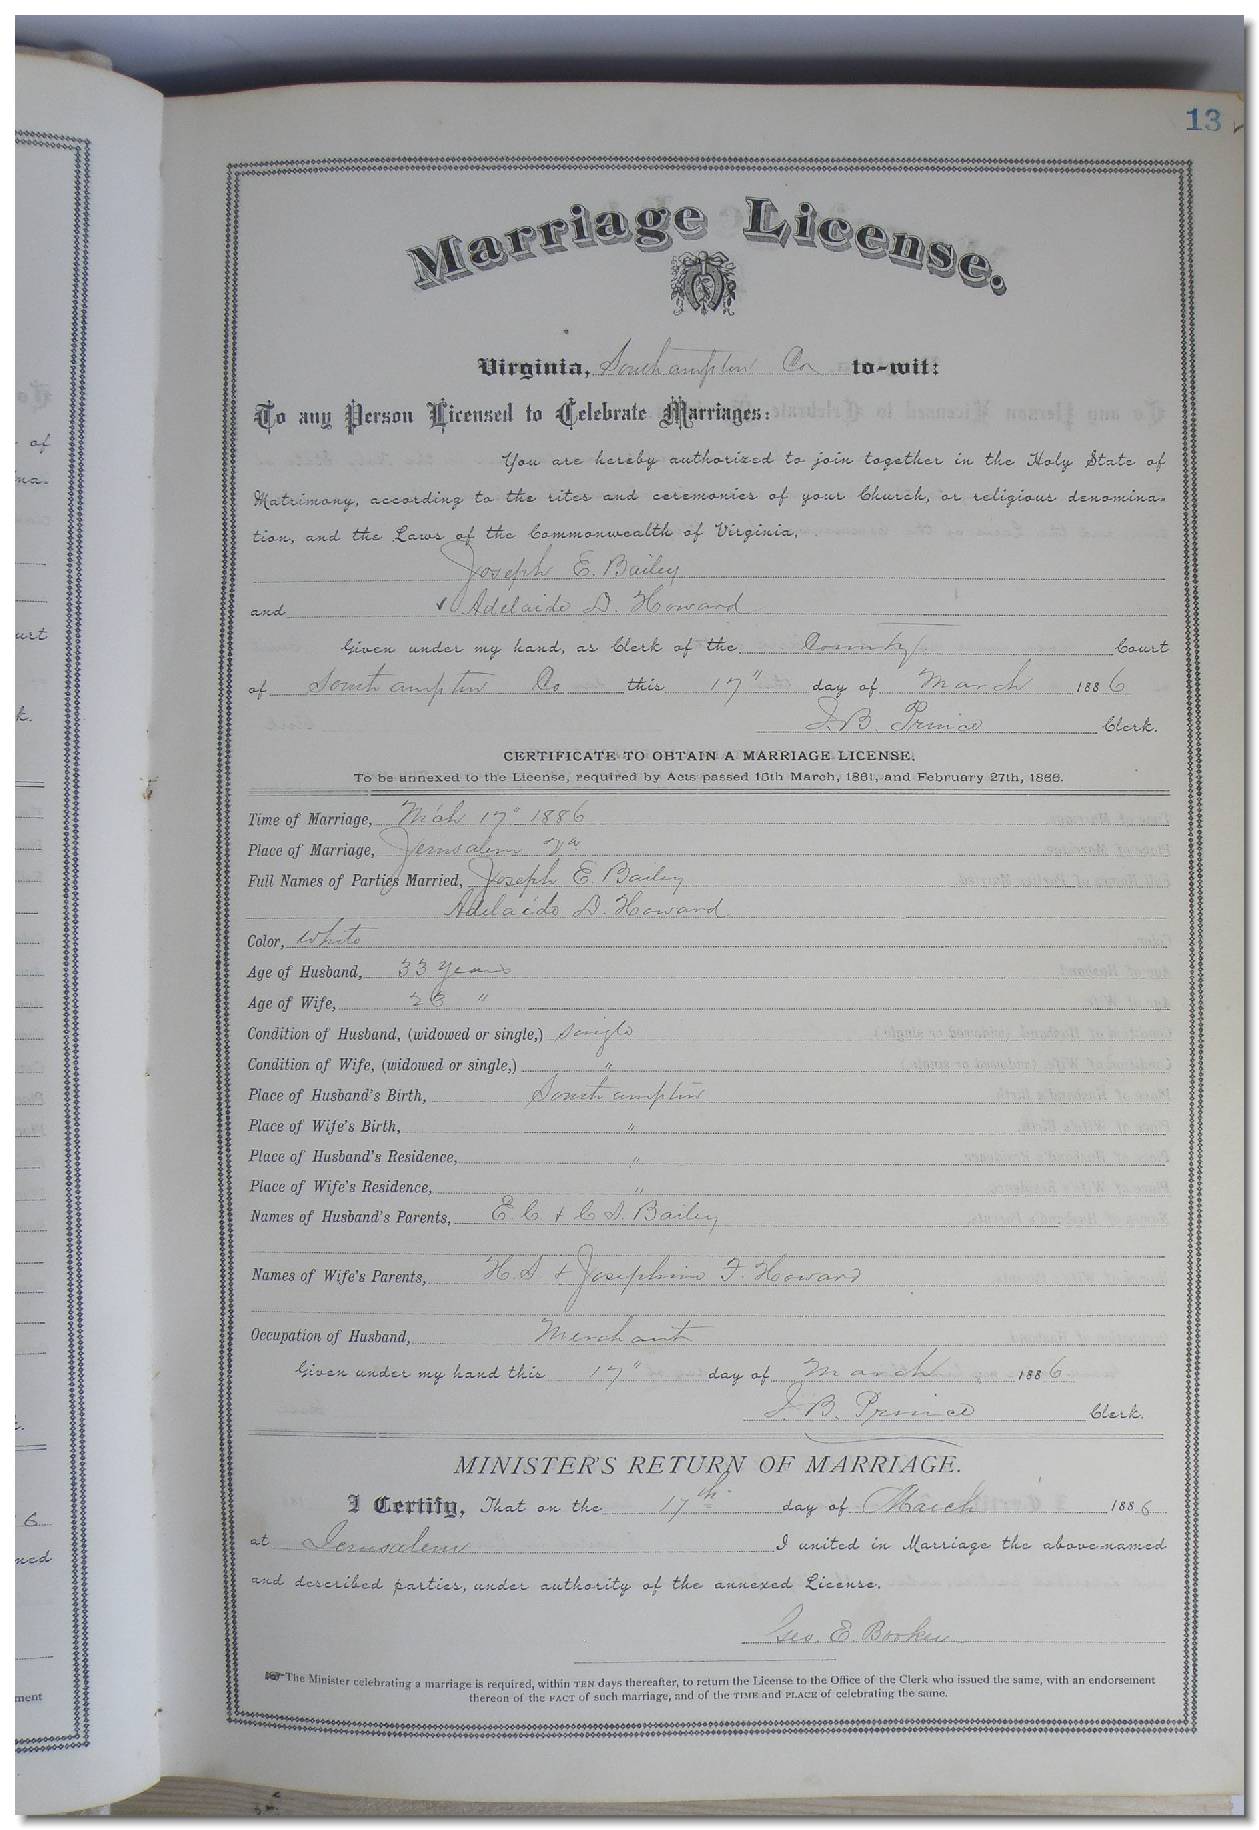 13
Marriage License.
Virginia, Southampton Co to-wit:
To any Person Licensed to Celebrate Marriages:
You are hereby authorized to join together in the Holy State of
Matrimony, according to the rites and ceremonies of your Church, or religious denomina-
tion, and the Laws of the Commonwealth of Virginia,
Joseph E. Bailey
and Adelaide D. Howard
Given under my hand, as Clerk of the County Court
of Southampton Co this 17" day of March 1886
J. B. Prince Clerk.
CERTIFICATE TO OBTAIN A MARRIAGE LICENSE.
To be annexed to the License, required by Acts passed 16th March, 1861, and February 27th, 1866.
Time of Marriage, Mch 17" 1886
Place of Marriage, Jerusalem Va
Full Names of Parties Married, Joseph E. Bailey
Adelaide D. Howard
Color, White
Age of Husband, 33 years
Age of Wife, 23 "
Condition of Husband, (widowed or single,) single
Condition of Wife, (widowed or single,) "
Place of Husband's Birth, Southampton
Place of Wife's Birth, "
Place of Husband's Residence, "
Place of Wife's Residence, "
Names of Husband's Parents, E. C. & C. A. Bailey
Names of Wife's Parents, H. S & Josephine F. Howard
Occupation of Husband, Merchant
Given under my hand this 17" day of March 1886
J. B. Prince Clerk.
MINISTER'S RETURN OF MARRIAGE.
I Certify, That on the 17th day of March 1886
at Jerusalem I united in Marriage the above-named
and described parties, under authority of the annexed License.
Geo. E. Booker
The Minister celebrating a marriage is required, within TEN days thereafter, to return the License to the Office of the Clerk who issued the same, with an endorsement
thereon of the FACT of such marriage, and of the TIME and PLACE of celebrating the same.